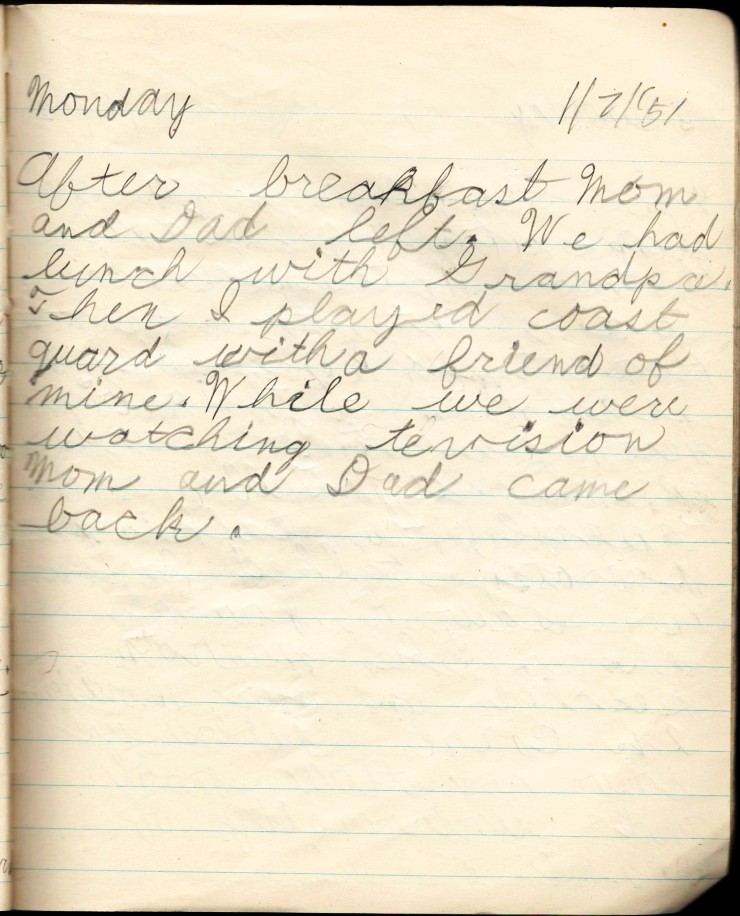 Monday 1/7/'51
After breakfast Mom
and Dad left. We had
lunch with Grandpa.
Then I played coast
guard with a friend of
mine. While we were
watching tevision
Mom and Dad came
back.